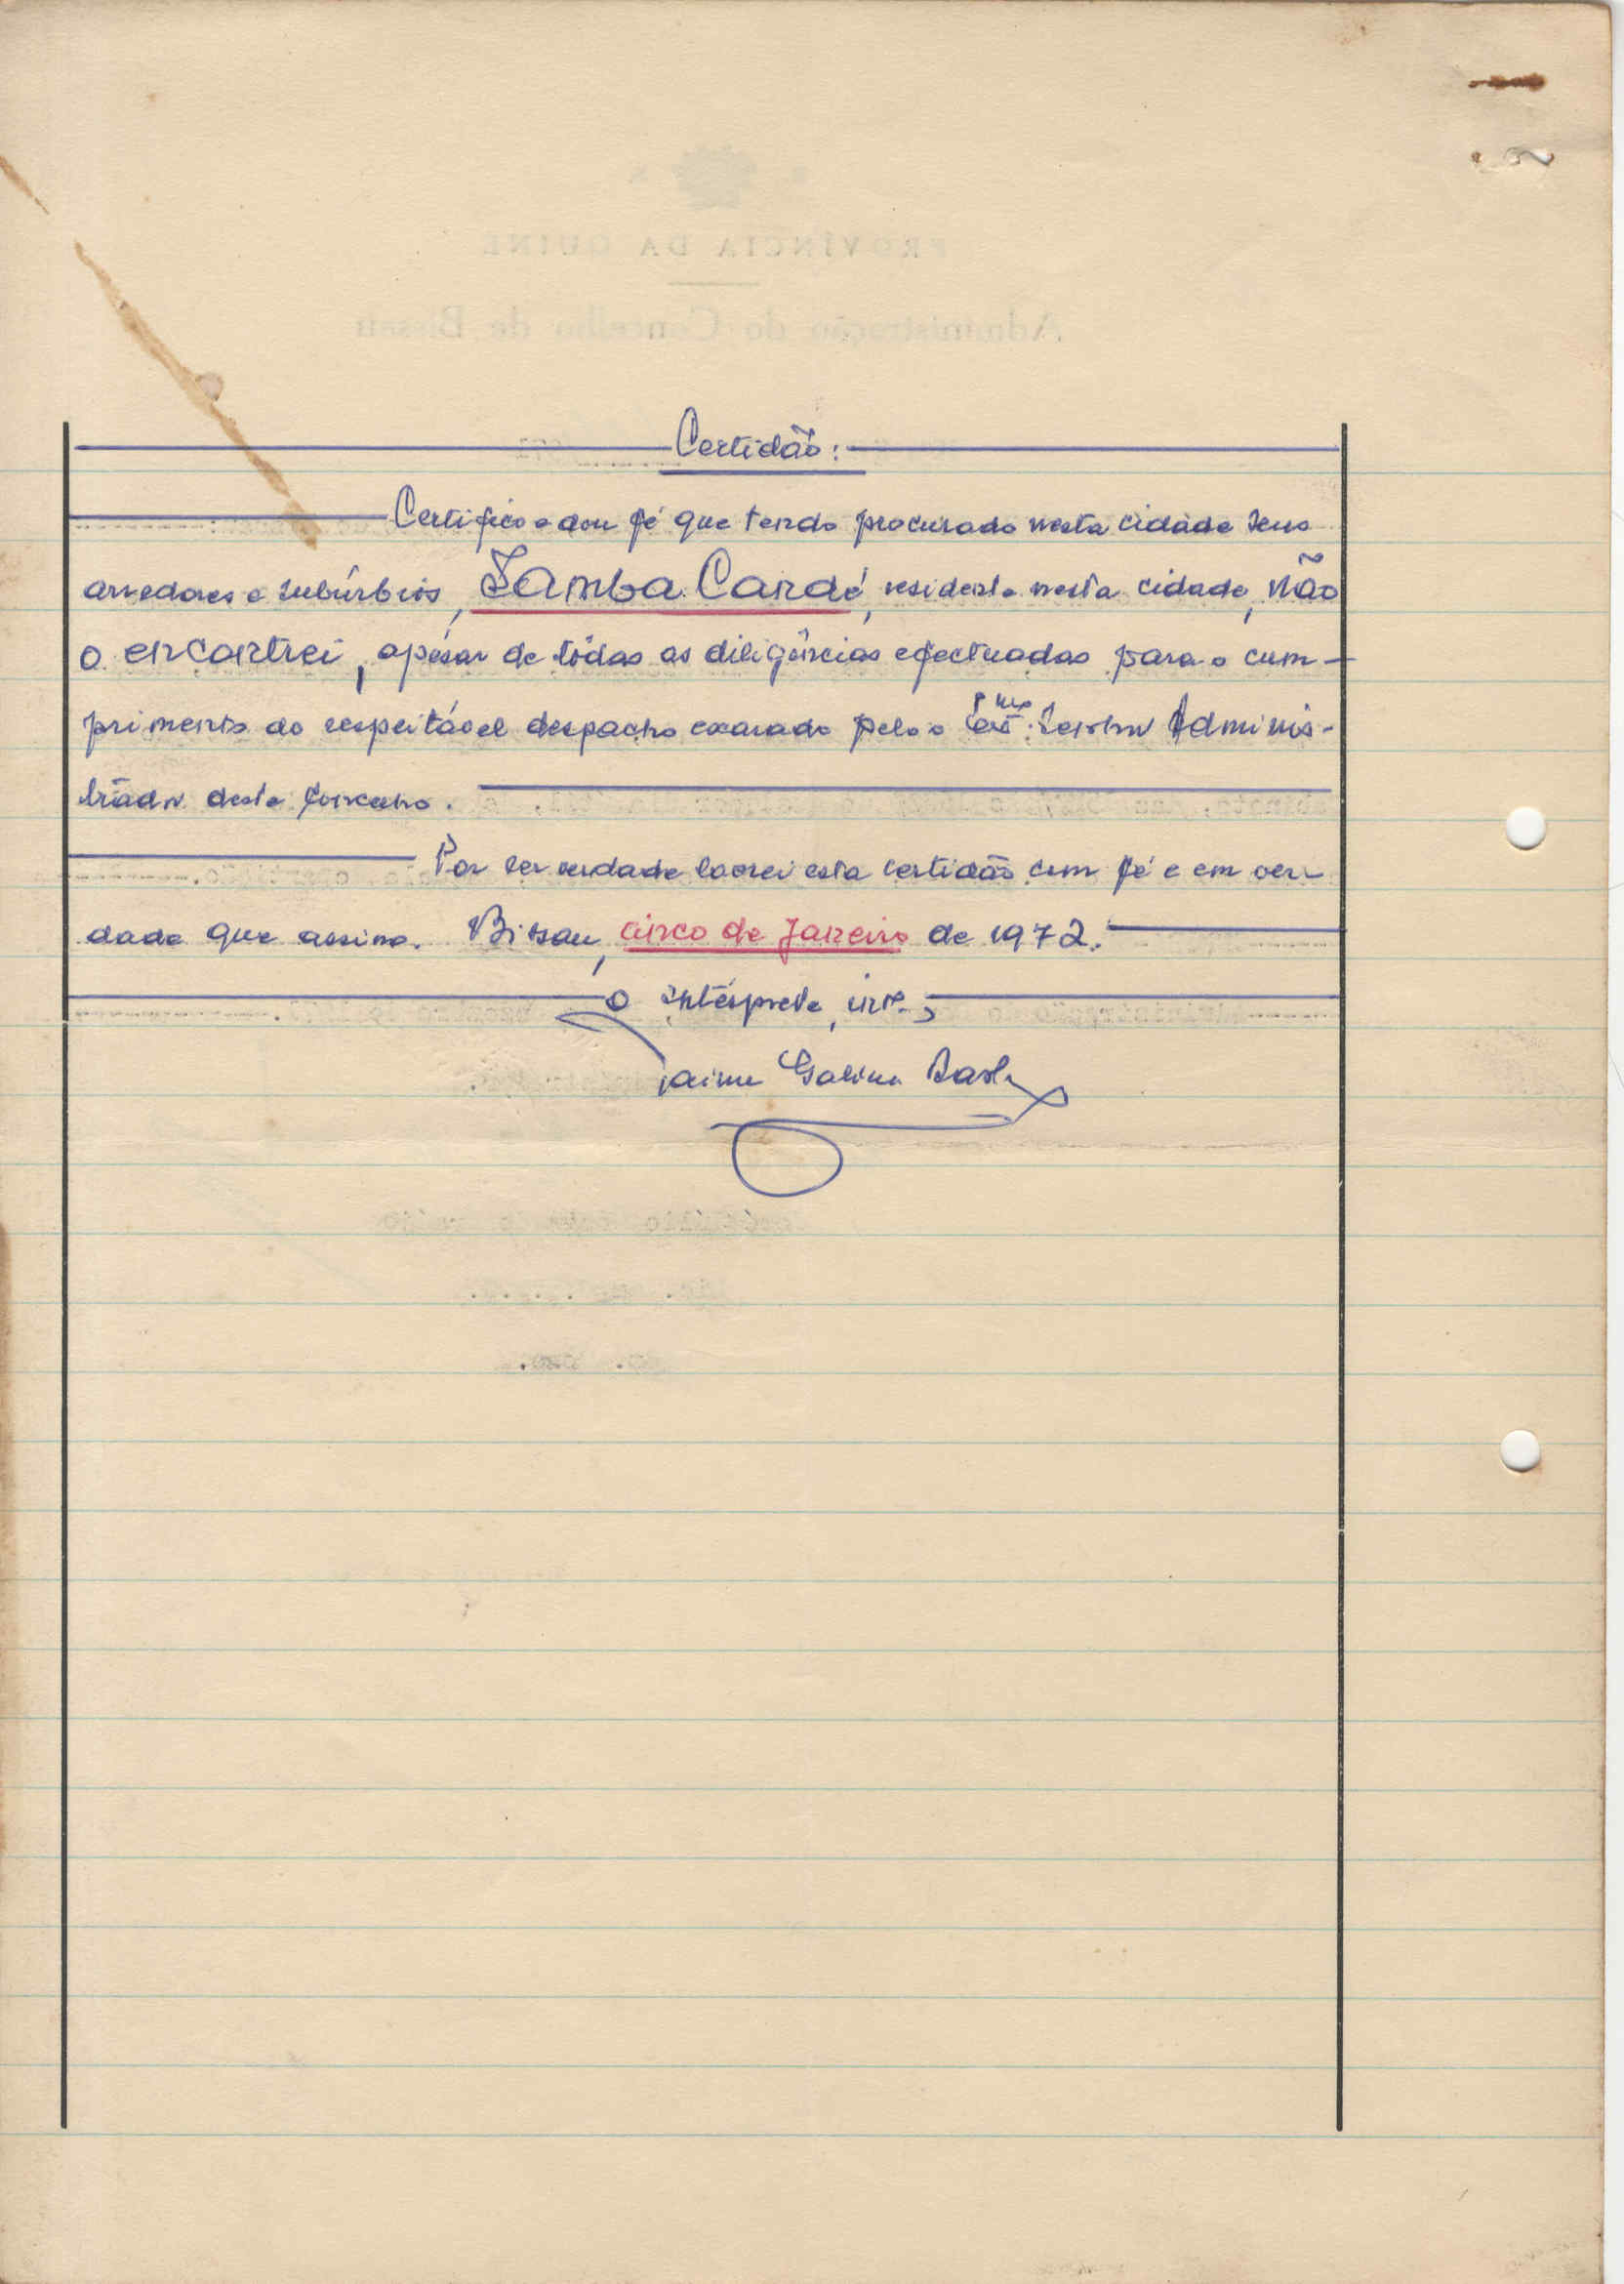 Certidão:
Certifico e dou fé que tendo procurado nesta cidade seus
arredores e subúrbios, Samba Candé, residente nesta cidade, não
o encontrei, apesar de tôdas as diligências efectuadas para o cum-
primento do respeitável despacho exarado pelo o Exmº. Senhor Adminis-
trador deste Concelho.
Por ser verdade lavrei esta certidão com fé e em ver-
dade que assino. Bissau, cinco de Janeiro de 1972.
O intérprete, intº.,
Jaime
PROVÍNCIA DA GUINÉ
Administração do Concelho de Bissau